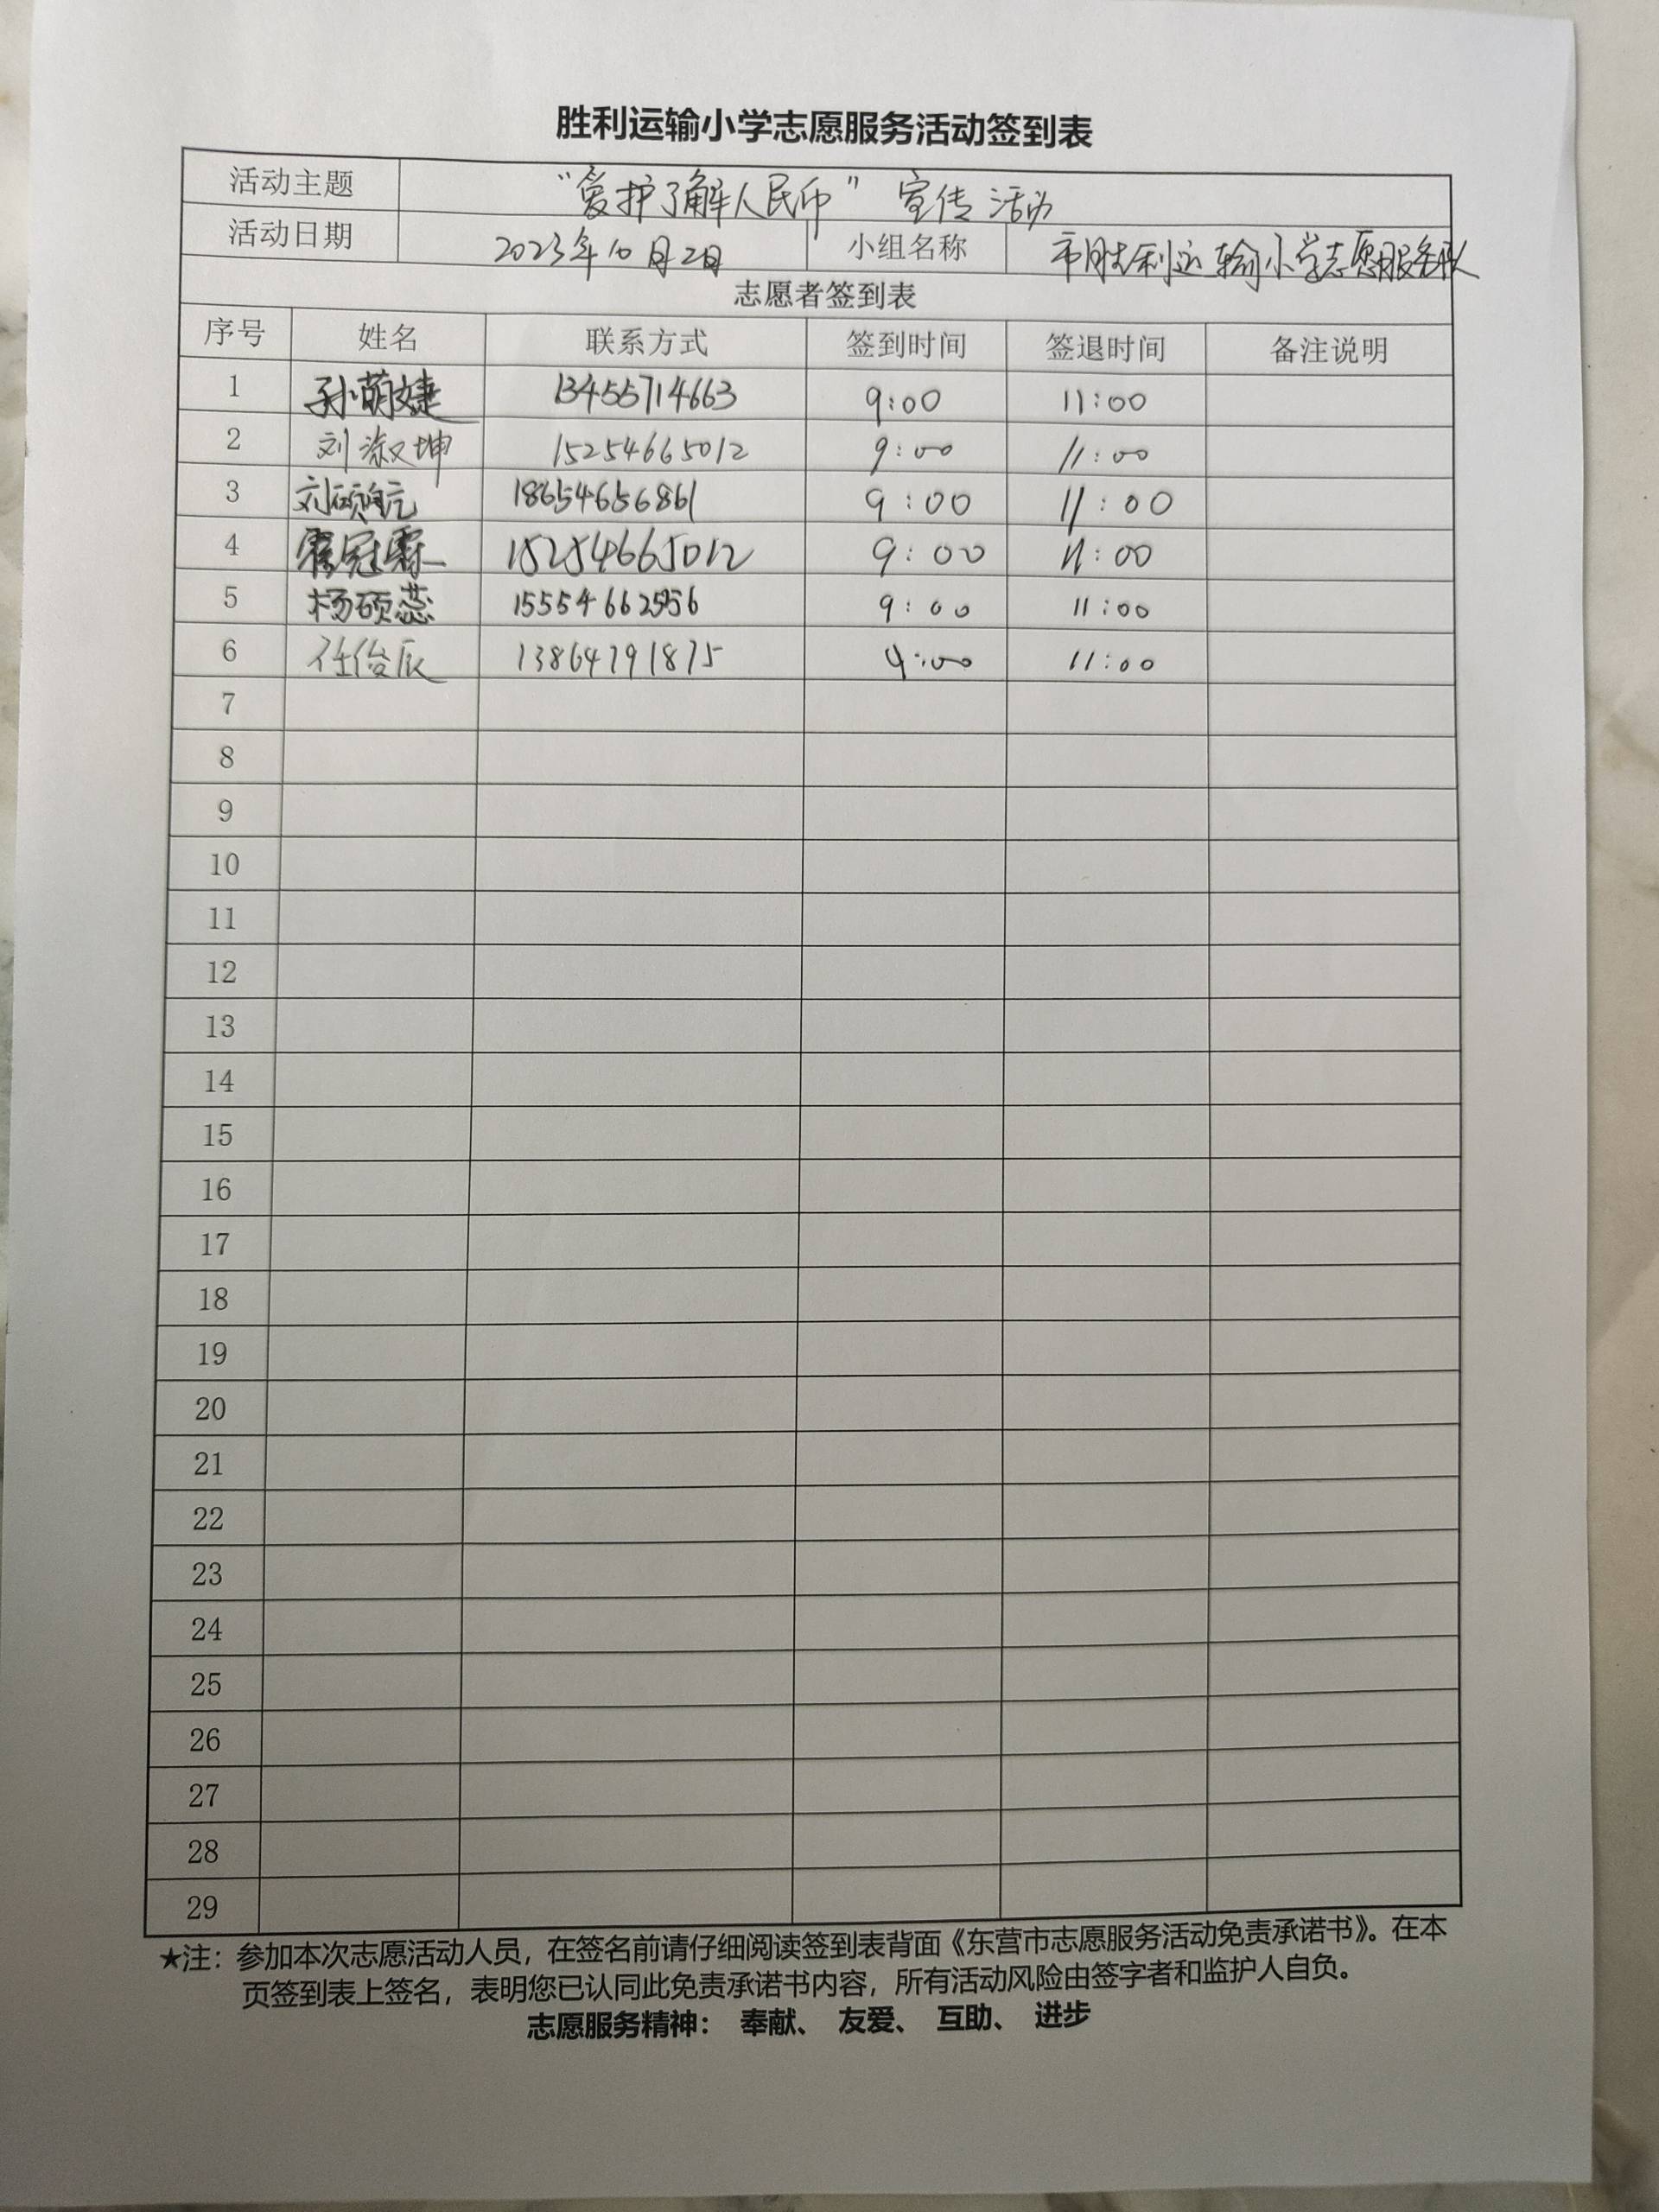 胜利运输小学志愿服务活动签到表
活动主题 “爱护了解人民币” 宣传活动
活动日期 2023年10月2日 小组名称 市胜利运输小学志愿服务队
志愿者签到表
序号 姓名 联系方式 签到时间 签退时间 备注说明
1 孙萌婕 13455714663 9:00 11:00
2 刘淑坤 15254665012 9:00 11:00
3 刘硕 18654656861 9:00 11:00
4 霍冠霖 15254665012 9:00 11:00
5 杨硕蕊 15554662556 9:00 11:00
6 任俊辰 13864791875 9:00 11:00
7
8
9
10
11
12
13
14
15
16
17
18
19
20
21
22
23
24
25
26
27
28
29
★注：参加本次志愿活动人员，在签名前请仔细阅读签到表背面《东营市志愿服务活动免责承诺书》。在本
页签到表上签名，表明您已认同此免责承诺书内容，所有活动风险由签字者和监护人自负。
志愿服务精神： 奉献、 友爱、 互助、 进步